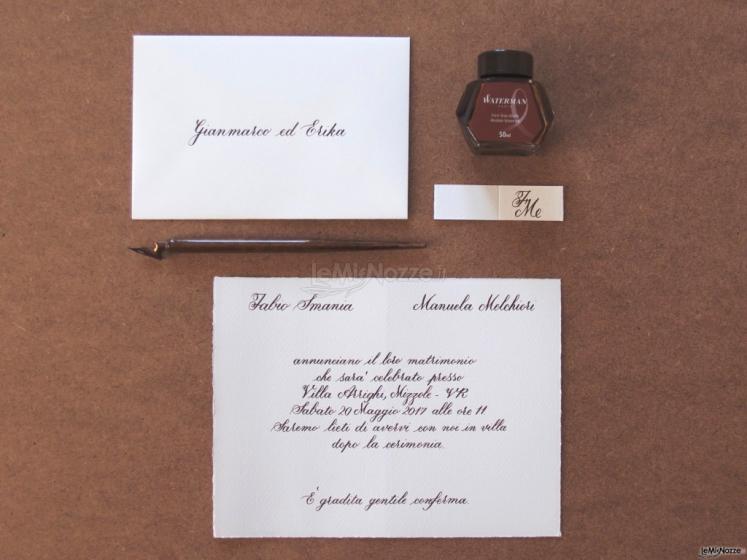 Gianmarco ed Erika
WATERMAN
50ml
F
Me
LeMieNozze.it
Fabio Smania
Manuela Melchiori
annunciano il loro matrimonio
che sara' celebrato presso
Villa Arrighi, Mizzole - VR
Sabato 20 Maggio 2017 alle ore 11
Saremo lieti di avervi con noi in villa
dopo la cerimonia.
E' gradita gentile conferma.
LeMieNozze